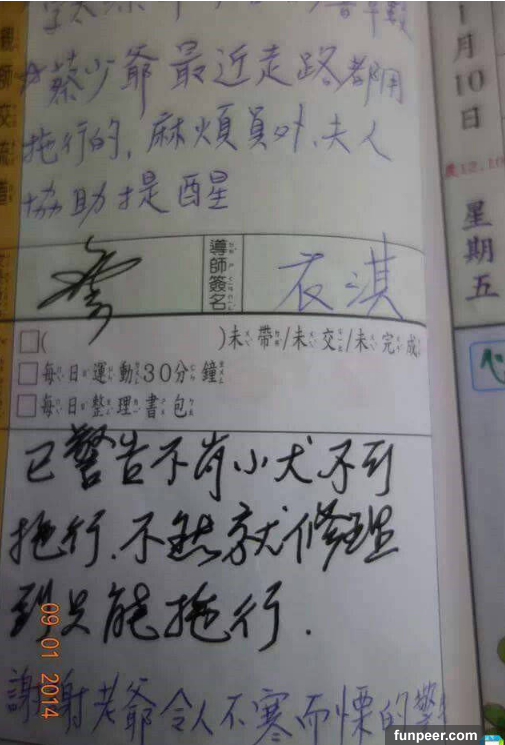 蔡少爺最近走路都用
拖行的,麻煩員外、夫人
協助提醒
導師簽名
衣淇
□( )未帶/未交/未完成
□每日運動30分鐘
□每日整理書包
已警告不肖小犬不可
拖行.不然就修理
到只能拖行.
謝謝老爺令人不寒而慄的警
09 01 2014
1月10日
星期五
funpeer.com